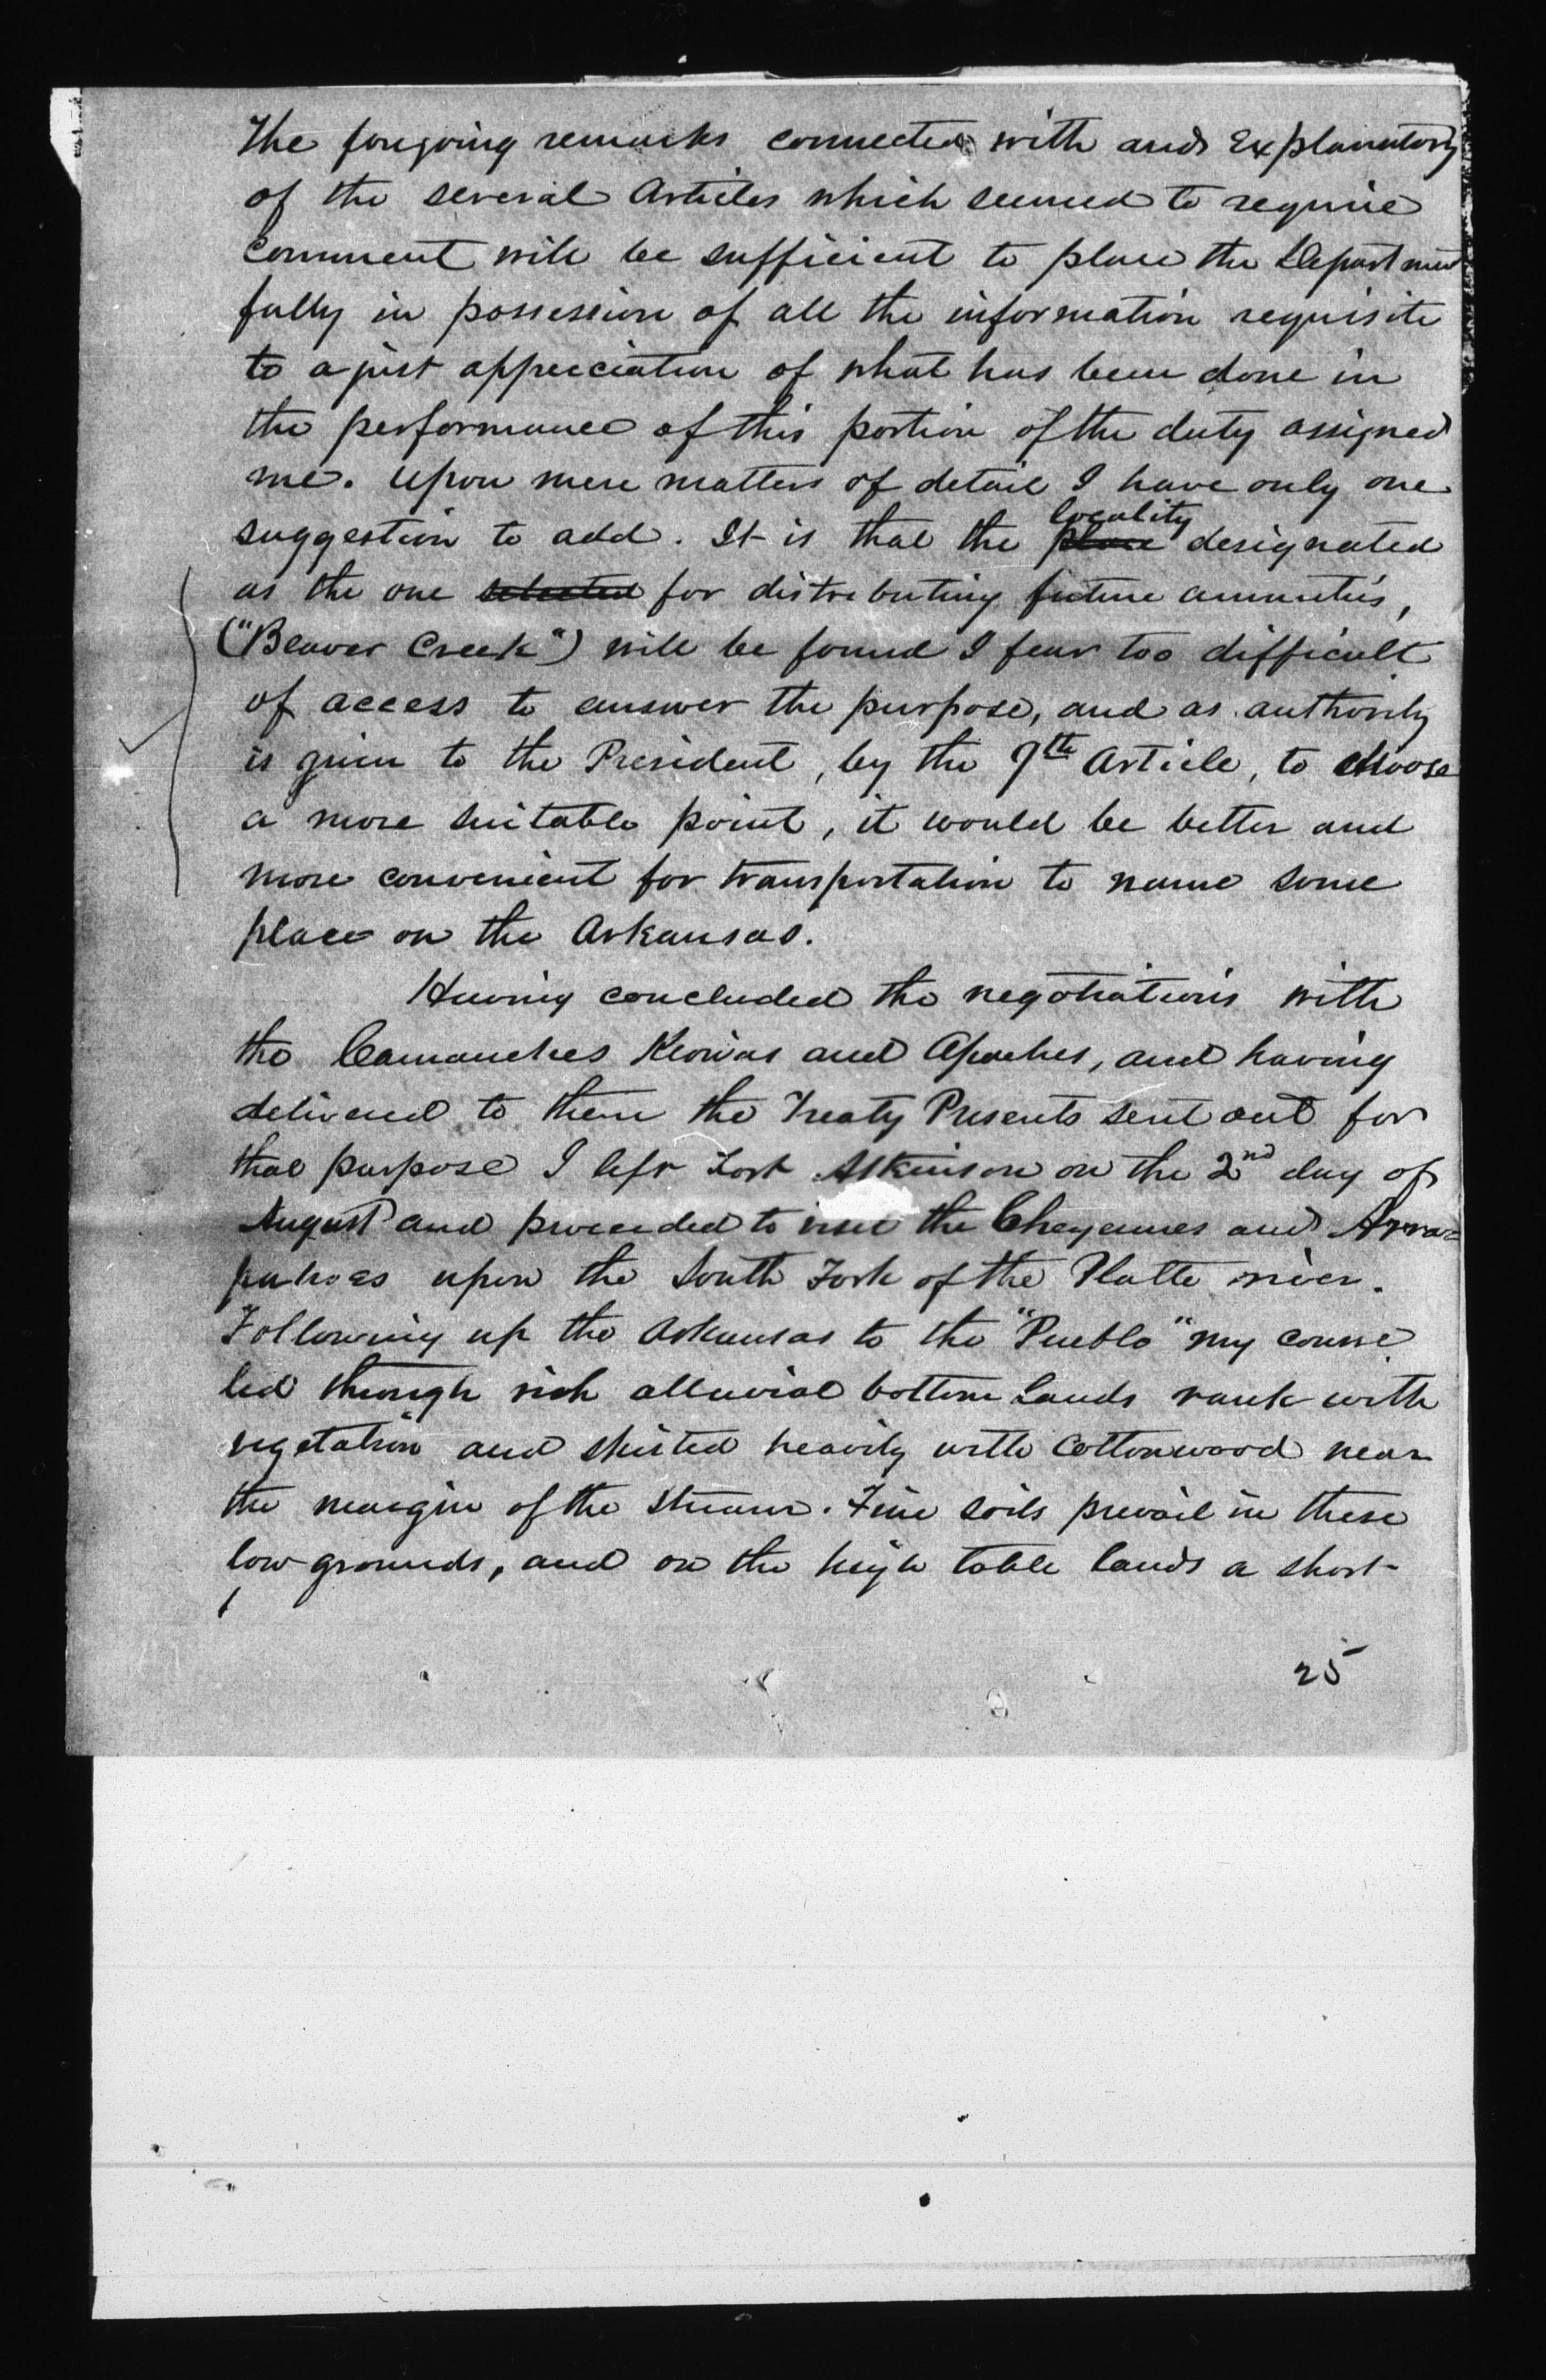 The foregoing remarks connected with and Explanatory
of the several Articles which seemed to require
comment will be sufficient to place the Department
fully in possession of all the information requisite
to a just appreciation of what has been done in
the performance of this portion of the duty assigned
me. Upon mere matters of detail I have only one
suggestion to add. It is that the place locality designated
as the one selected for distributing future annuities,
("Beaver Creek") will be found I fear too difficult
of access to answer the purpose, and as authority
is given to the President, by the 9th Article, to choose
a more suitable point, it would be better and
more convenient for transportation to name some
place on the Arkansas.
Having concluded the negotiations with
the Camanches Kiowas and Apaches, and having
delivered to them the Treaty Presents sent out for
that purpose I left Fort Atkinson on the 2nd day of
August and proceeded to visit the Cheyennes and Arra=
pahoes upon the South Fork of the Platte river.
Following up the Arkansas to the "Pueblo" my course
led through rich alluvial bottom lands rank with
vegetation and skirted heavily with Cottonwood near
the margin of the stream. Fine soils prevail in these
low grounds, and on the high table lands a short
25